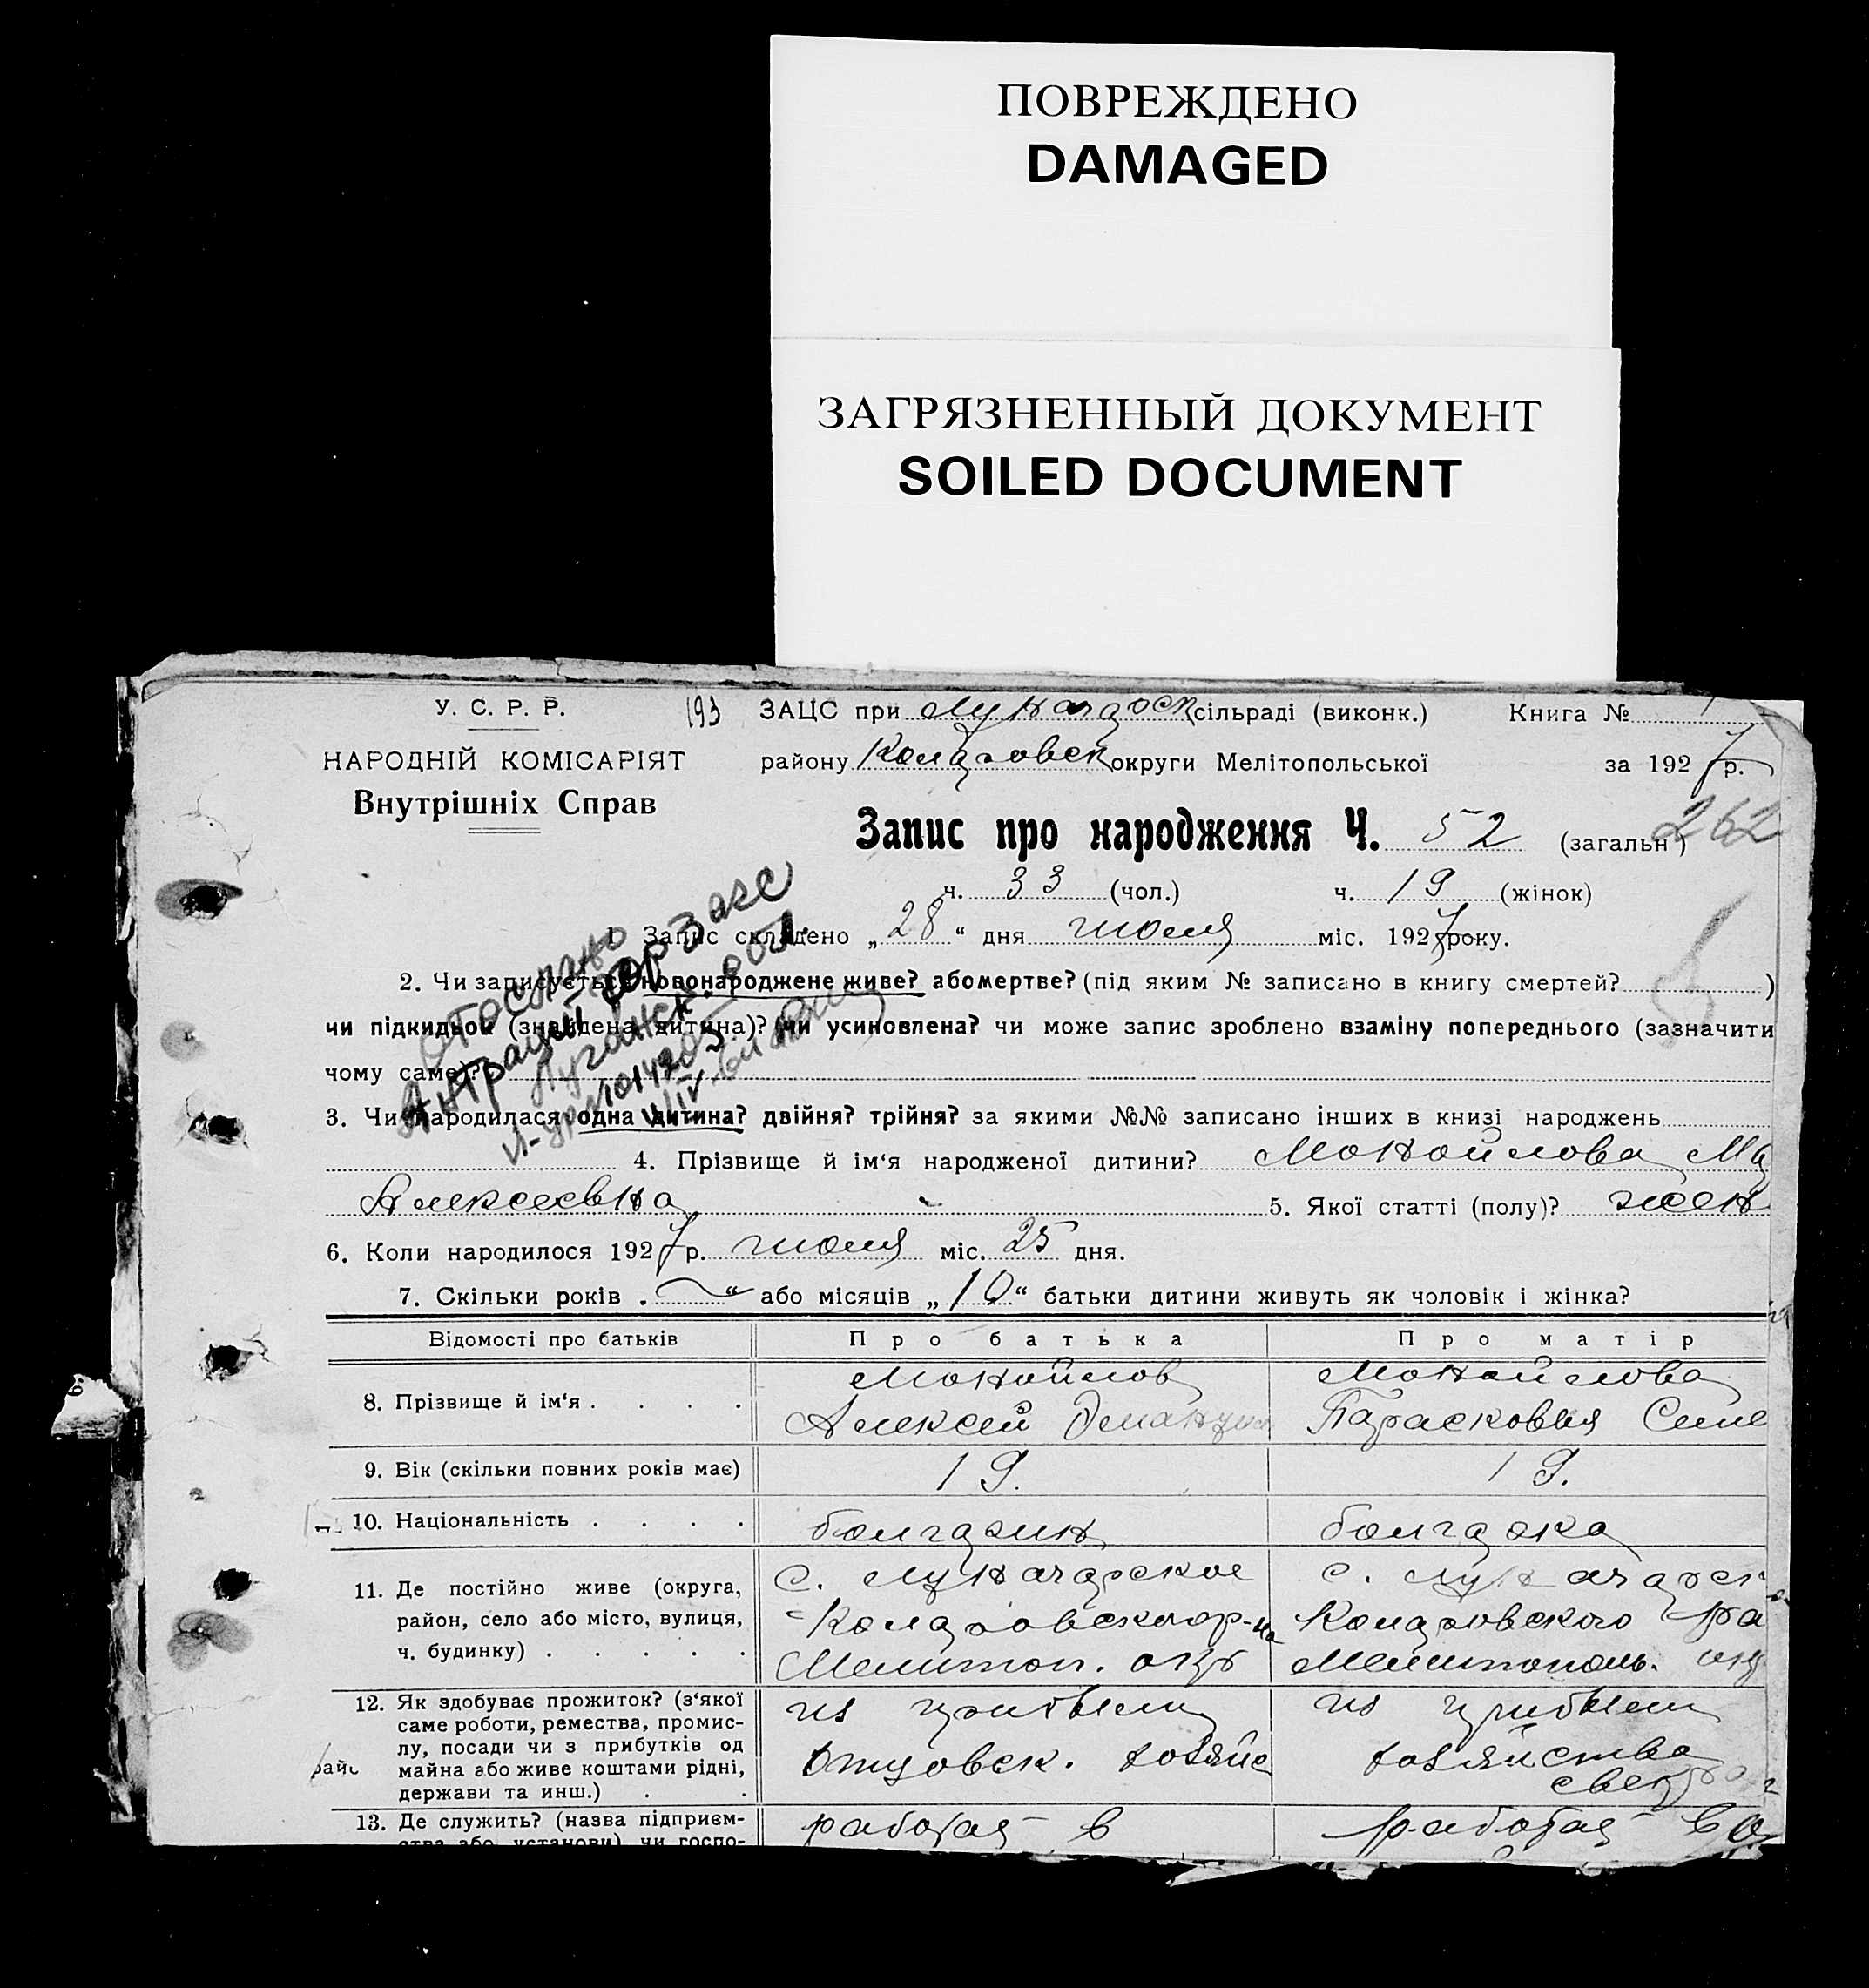 ПОВРЕЖДЕНО
DAMAGED
ЗАГРЯЗНЕННЫЙ ДОКУМЕНТ
SOILED DOCUMENT
У. С. Р. Р. 193 ЗАЦС при Луначарск сільраді (виконк.) Книга №
НАРОДНІЙ КОМІСАРІЯТ району Коларовск округи Мелітопольської за 1927 р.
Внутрішніх Справ
Запис про народження Ч. 52 (загальн) 262
ч. 33 (чол.) ч. 19 (жінок)
Отослано
Антрацит горзагс
Луганск. обл.
1. Запис складено „28“ дня июля міс. 1927 року.
2. Чи записується новонароджене живе? або мертве? (під яким № записано в книгу смертей? )
чи підкидьок (знайдена дитина)? чи усиновлена? чи може запис зроблено взаміну попереднього (зазначити
чому саме)?
3. Чи народилася одна дитина? двійня? трійня? за якими №№ записано інших в книзі народжень
4. Прізвище й ім'я народженої дитини? Монойлова
Алексеевна 5. Якої статті (полу)? жен
6. Коли народилося 1927 р. июля міс. 25 дня.
7. Скільки років . “ або місяців „10“ батьки дитини живуть як чоловік і жінка?
Відомості про батьків Про батька Про матір
8. Прізвище й ім'я . . . . Монойлов Монойлова
Алексей Парасковья Симе
9. Вік (скільки повних років має) 19. 19.
10. Національність . . . . болгарин болгарка
11. Де постійно живе (округа, с. Луначарское с. Луначарск
район, село або місто, вулиця, Коларовского р-на Коларовского ра
ч. будинку) . . . . . Мелитоп. окр Мелитополь. окр
12. Як здобуває прожиток? (з'якої из прибыли из прибыли
саме роботи, ремества, промис-
лу, посади чи з прибутків од отцовск. хозяйс хозяйства
майна або живе коштами рідні, свекра
держави та инш.) . .
13. Де служить? (назва підприєм- работая в работая в
ства або установи) чи госпо-